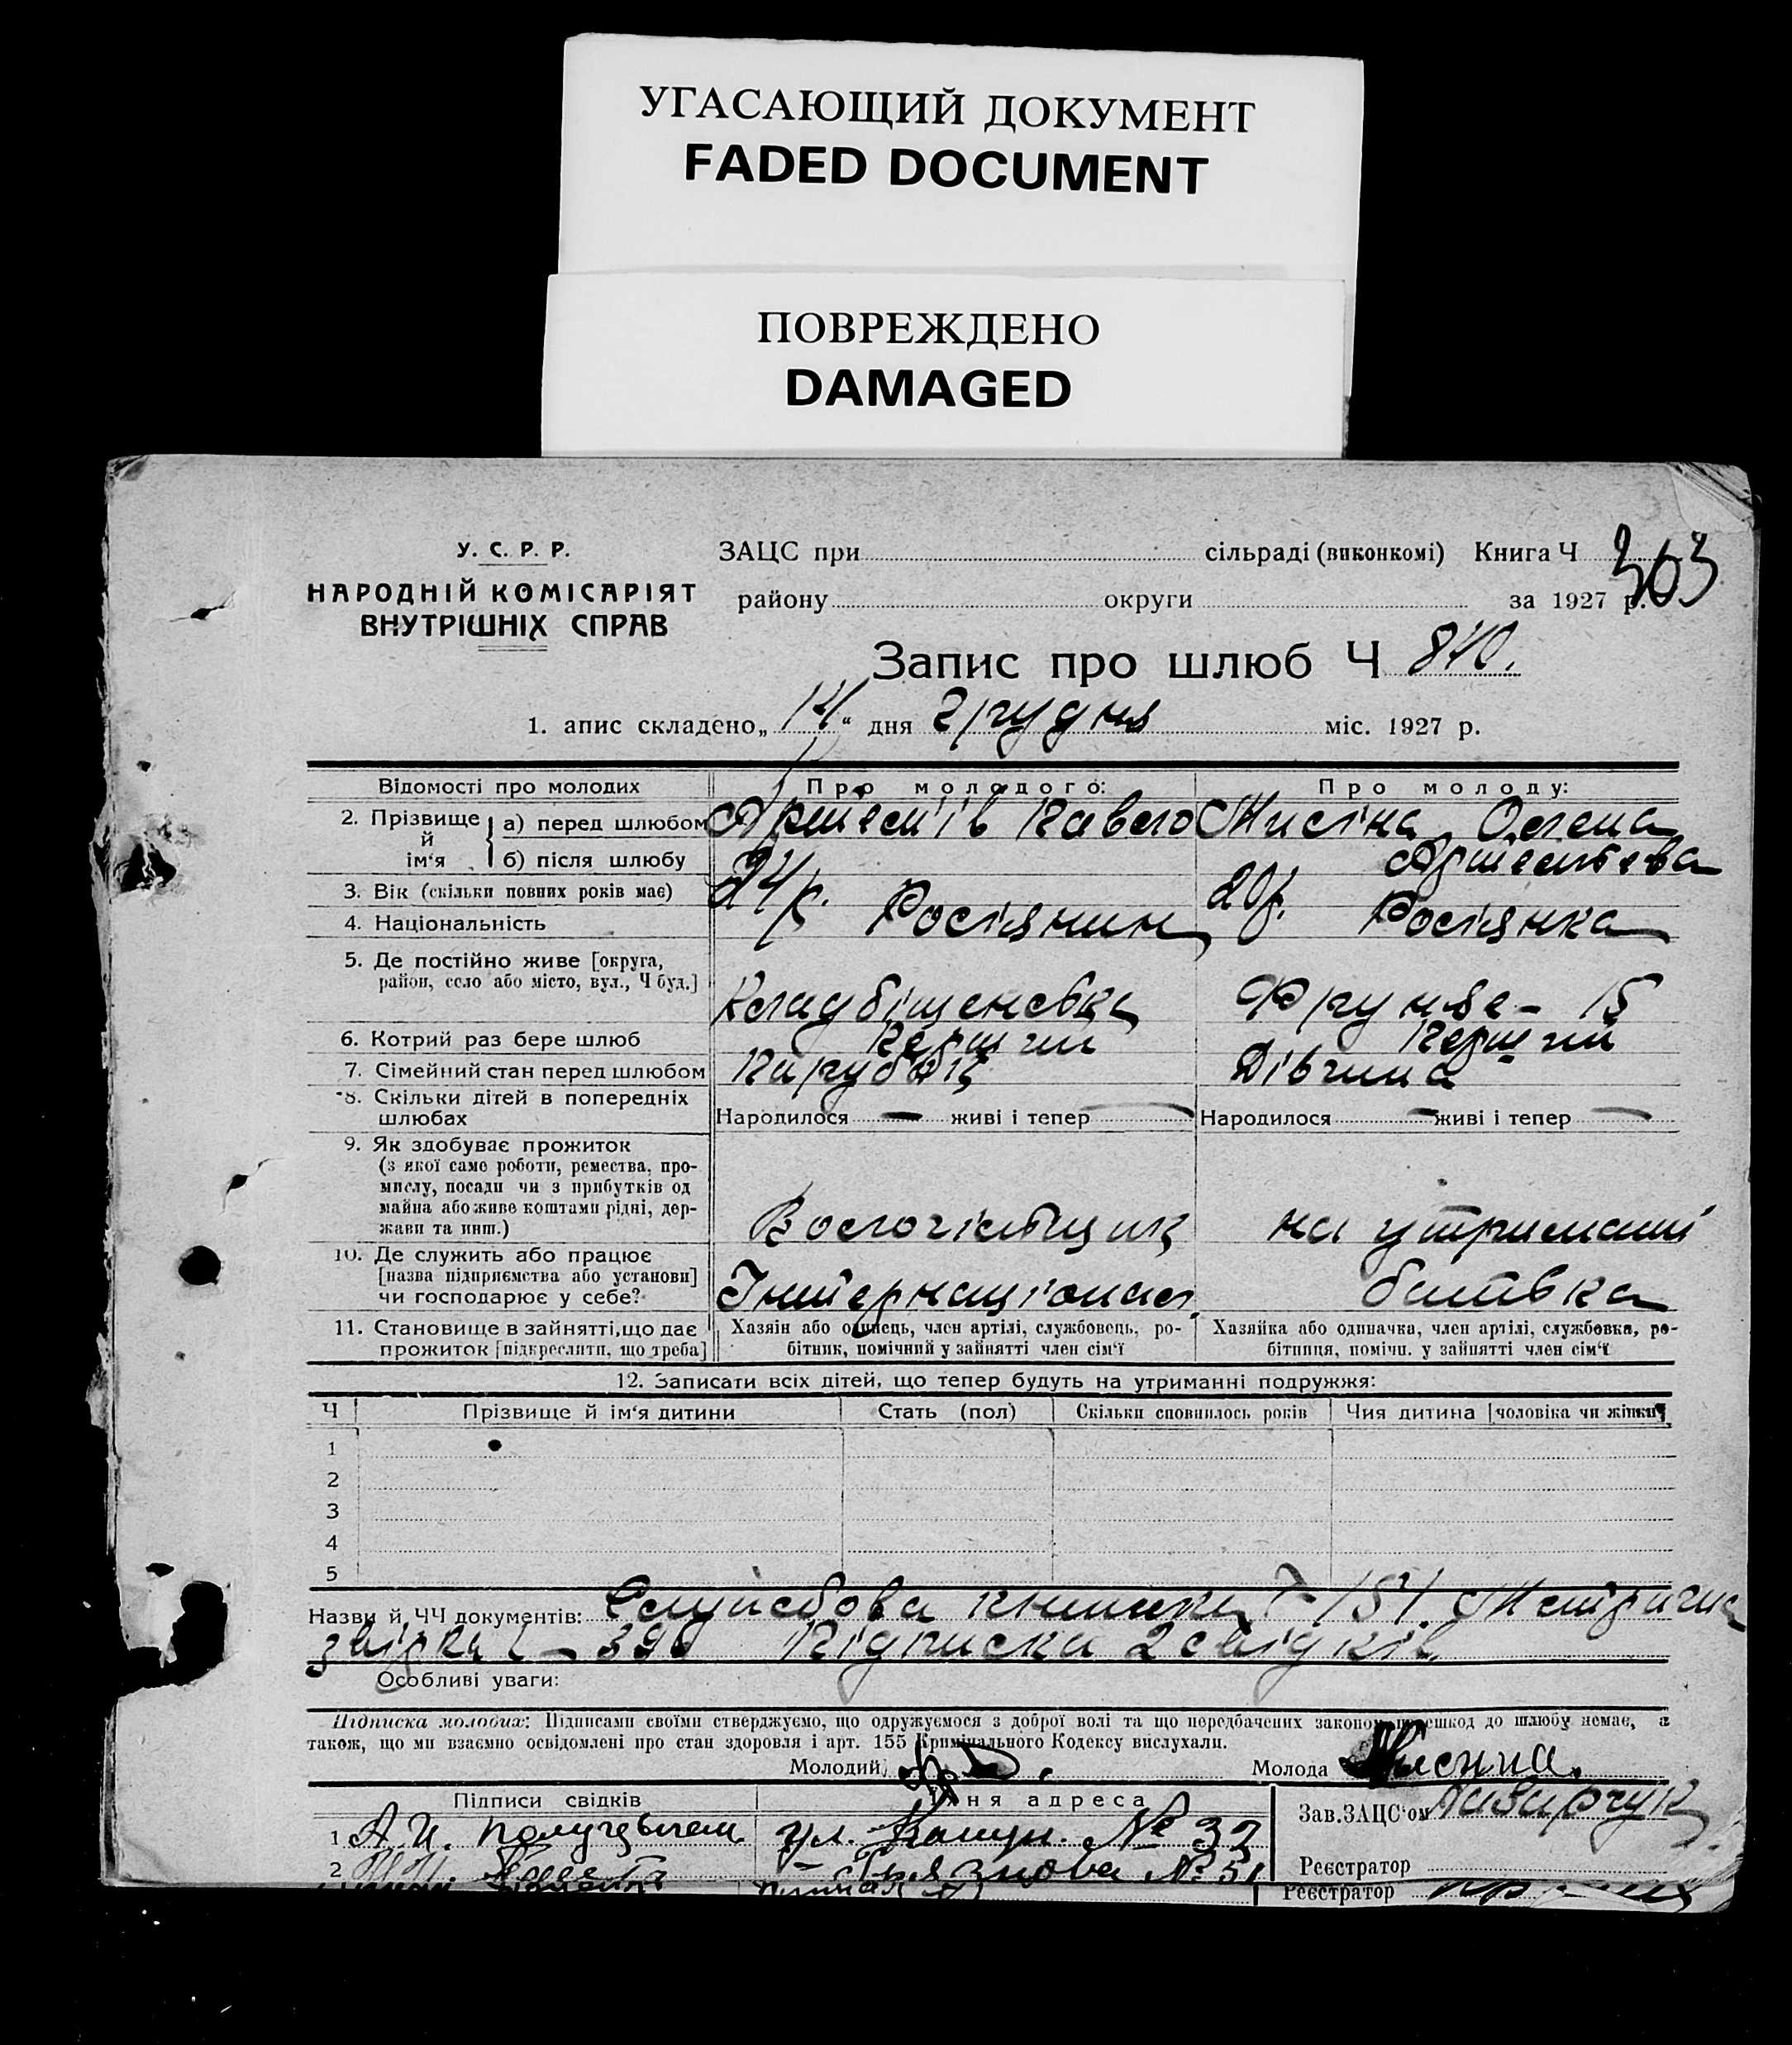 УГАСАЮЩИЙ ДОКУМЕНТ
FADED DOCUMENT
ПОВРЕЖДЕНО
DAMAGED
У. С. Р. Р.
НАРОДНІЙ КОМІСАРІЯТ
ВНУТРІШНІХ СПРАВ
ЗАЦС при сільраді (виконкомі) Книга Ч
363
району округи за 1927 р.
Запис про шлюб Ч 840.
1. апис складено „14“ дня грудня міс. 1927 р.
Відомості про молодих Про молодого: Про молоду:
2. Прізвище й ім‘я
а) перед шлюбом Артем'їв Павло Мисіна Олена
б) після шлюбу Артем'єва
3. Вік (скільки повних років має) 24 р. 20 р.
4. Національність Росіянин Росіянка
5. Де постійно живе [округа,
район, село або місто, вул., Ч буд.] Кладбіщенська Фрунзе - 15
6. Котрий раз бере шлюб Перший Перший
7. Сімейний стан перед шлюбом Парубок Дівчина
8. Скільки дітей в попередніх
шлюбах Народилося — живі і тепер — Народилося — живі і тепер —
9. Як здобуває прожиток
(з якої саме роботи, ремества, про-
мислу, посади чи з прибутків од
майна або живе коштами рідні, дер-
жави та инш.) на утриманні
10. Де служить або працює
[назва підприємства або установи]
чи господарює у себе? Інтернаціонал батька
11. Становище в зайнятті, що дає
прожиток [підкреслити, що треба]
Хазяїн або одинець, член артілі, службовець, ро-
бітник, помічний у зайнятті член сім‘ї
Хазяйка або одиначка, член артілі, службовка, ро-
бітниця, помічн. у зайнятті член сім‘ї
12. Записати всіх дітей, що тепер будуть на утриманні подружжя:
Ч Прізвище й ім‘я дитини Стать (пол) Скільки сповнилось років Чия дитина [чоловіка чи жінки]
1
2
3
4
5
Назви й ЧЧ документів: Службова книжка Ч 154. Метрична
Ч – 390 Підписка 2 свідків.
Особливі уваги:
Підписка молодих: Підписами своїми стверджуємо, що одружуємося з доброї волі та що передбачених законом перешкод до шлюбу немає, а
також, що ми взаємно освідомлені про стан здоровля і арт. 155 Кримінального Кодексу вислухали.
Молодий Молода Мисина.
Підписи свідків Їхня адреса Зав. ЗАЦС‘ом
1 А. И. ул. Комун. № 32
2 № 51 Реєстратор
Реєстратор